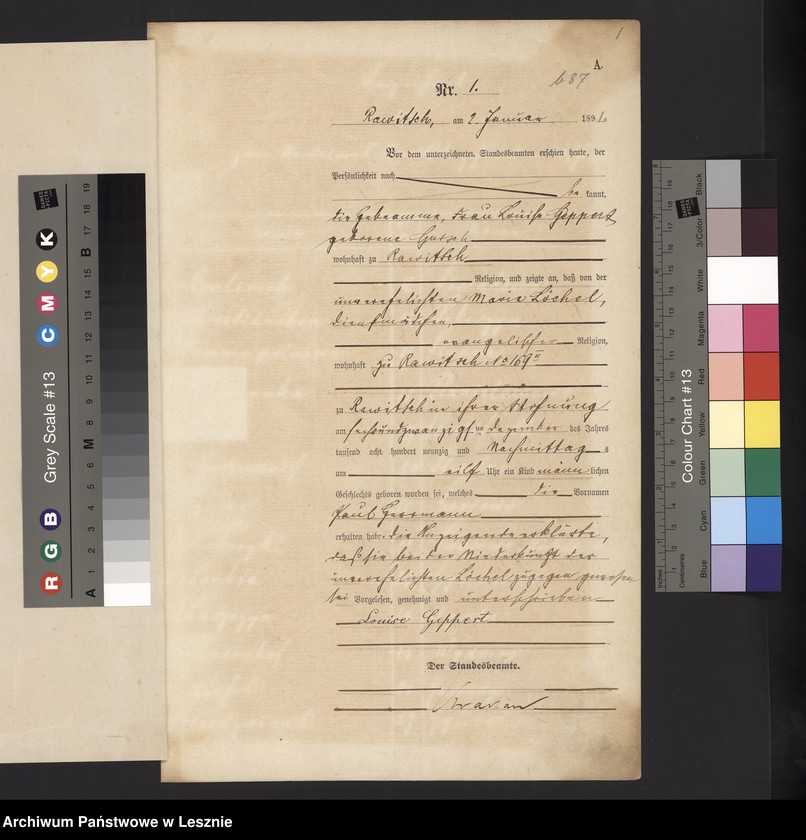 1
A.
687
Nr. 1.
Rawitsch, am 2 Januar 1891.
Vor dem unterzeichneten Standesbeamten erschien heute, der
Persönlichkeit nach
be kannt,
die Hebeamme, Frau Louise Geppert
geborene
wohnhaft zu Rawitsch
Religion, und zeigte an, daß von der
unverehelichten Marie Löchel,
Dienstmädchen,
evangelischer Religion,
wohnhaft zu Rawitsch No 169
zu Rawitsch in ihrer Wohnung
am sechsundzwanzigsten Dezember des Jahres
tausend acht hundert neunzig und Nachmittag s
um eilf Uhr ein Kind männ lichen
Geschlechts geboren worden sei, welches die Vornamen
Paul Herrmann
erhalten habe. die Anzeigende erklärte,
daß sie bei der Niederkunft der
unverehelichten Löchel zugegen gewesen
sei Vorgelesen, genehmigt und unterschrieben
Louise Geppert
Der Standesbeamte.
Grey Scale #13
C M Y K
R G B
A 1 2 3 4 5 6 M 8 9 10 11 12 13 14 15 B 17 18 19
Colour Chart #13
Blue Cyan Green Yellow Red Magenta White 3/Color Black
Inches
Centimetres
Archiwum Państwowe w Lesznie